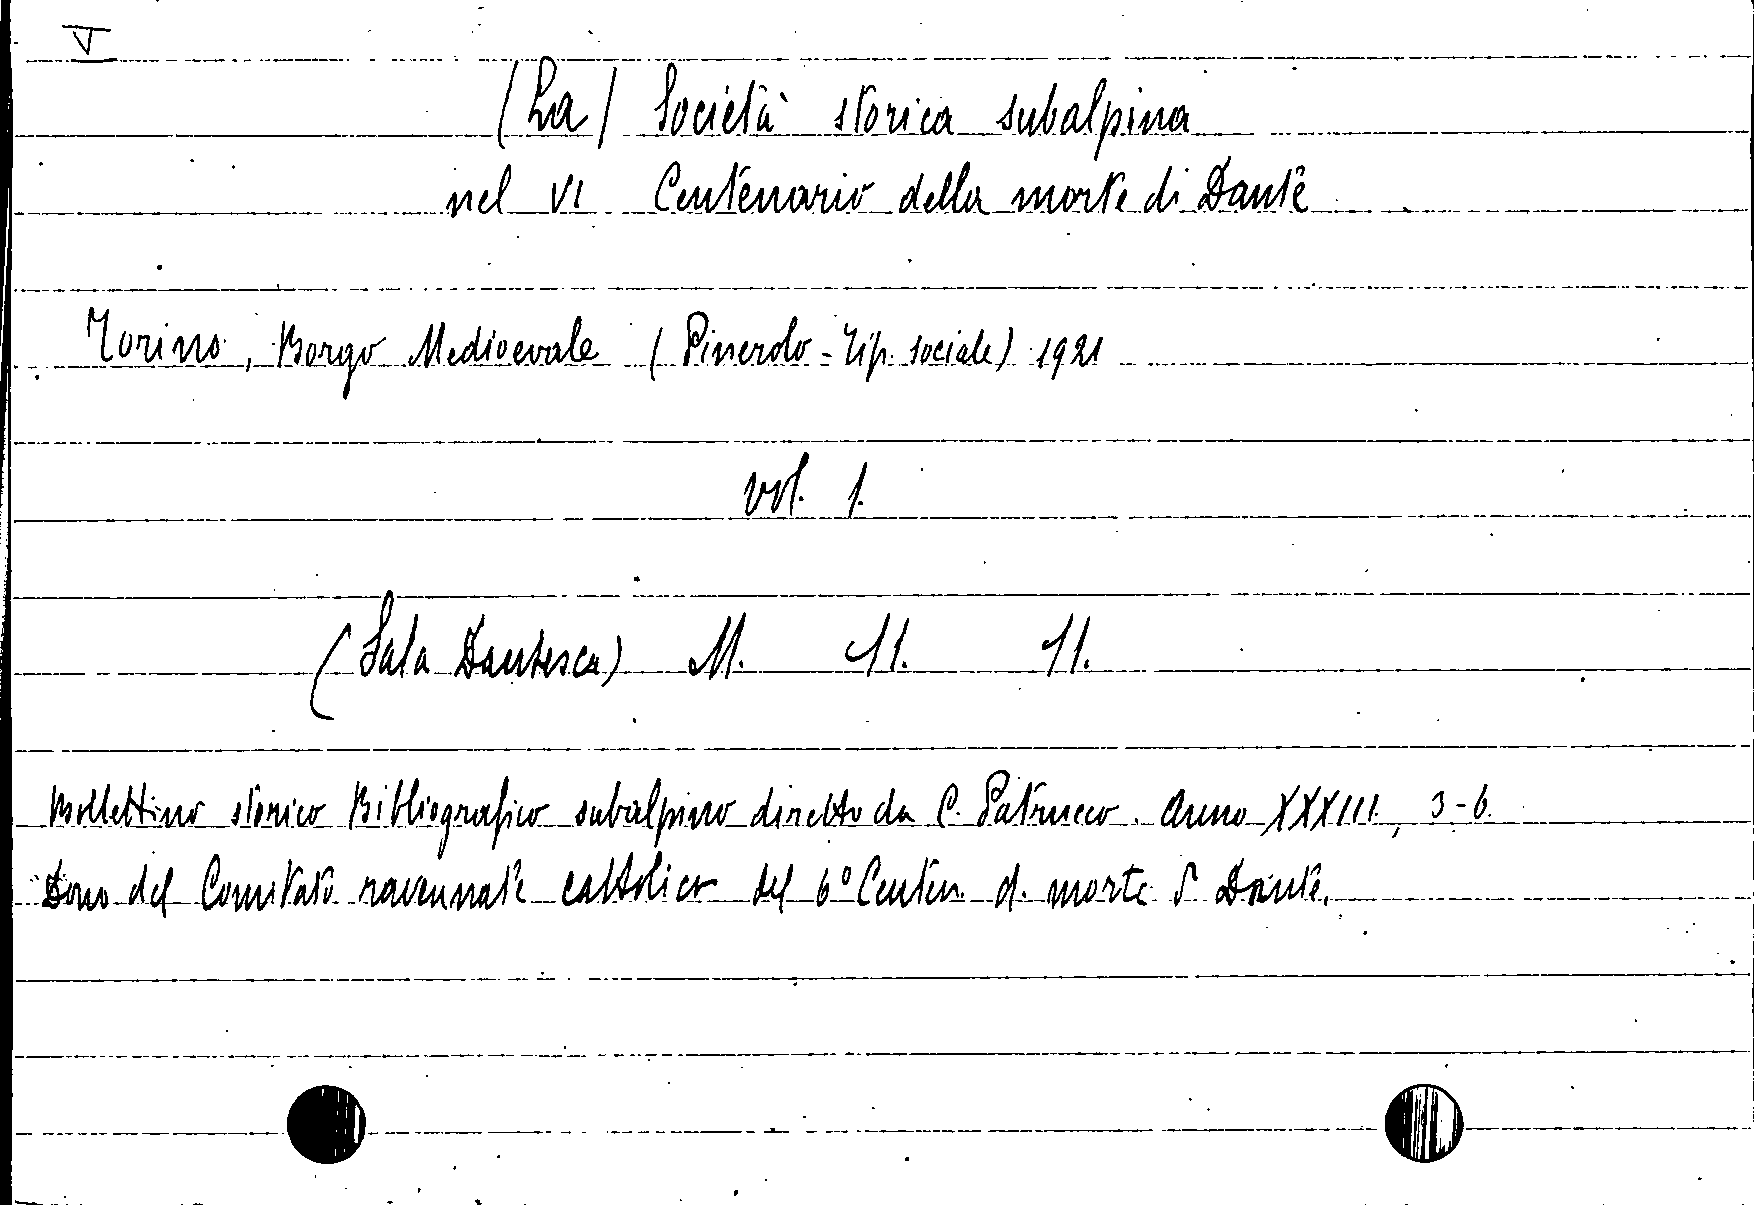 V
(La) Società storica subalpina
nel VI Centenario della morte di Dante
Torino, Borgo Medioevale (Pinerolo - Tip. sociale) 1921
vol. 1.
(Sala Dantesca) M. 11. 11.
Bollettino storico Bibliografico subalpino diretto da C. Patrucco. Anno XXXIII, 3-6.
Dono del Comitato ravennate cattolico del 6º Centen. d. morte d Dante.